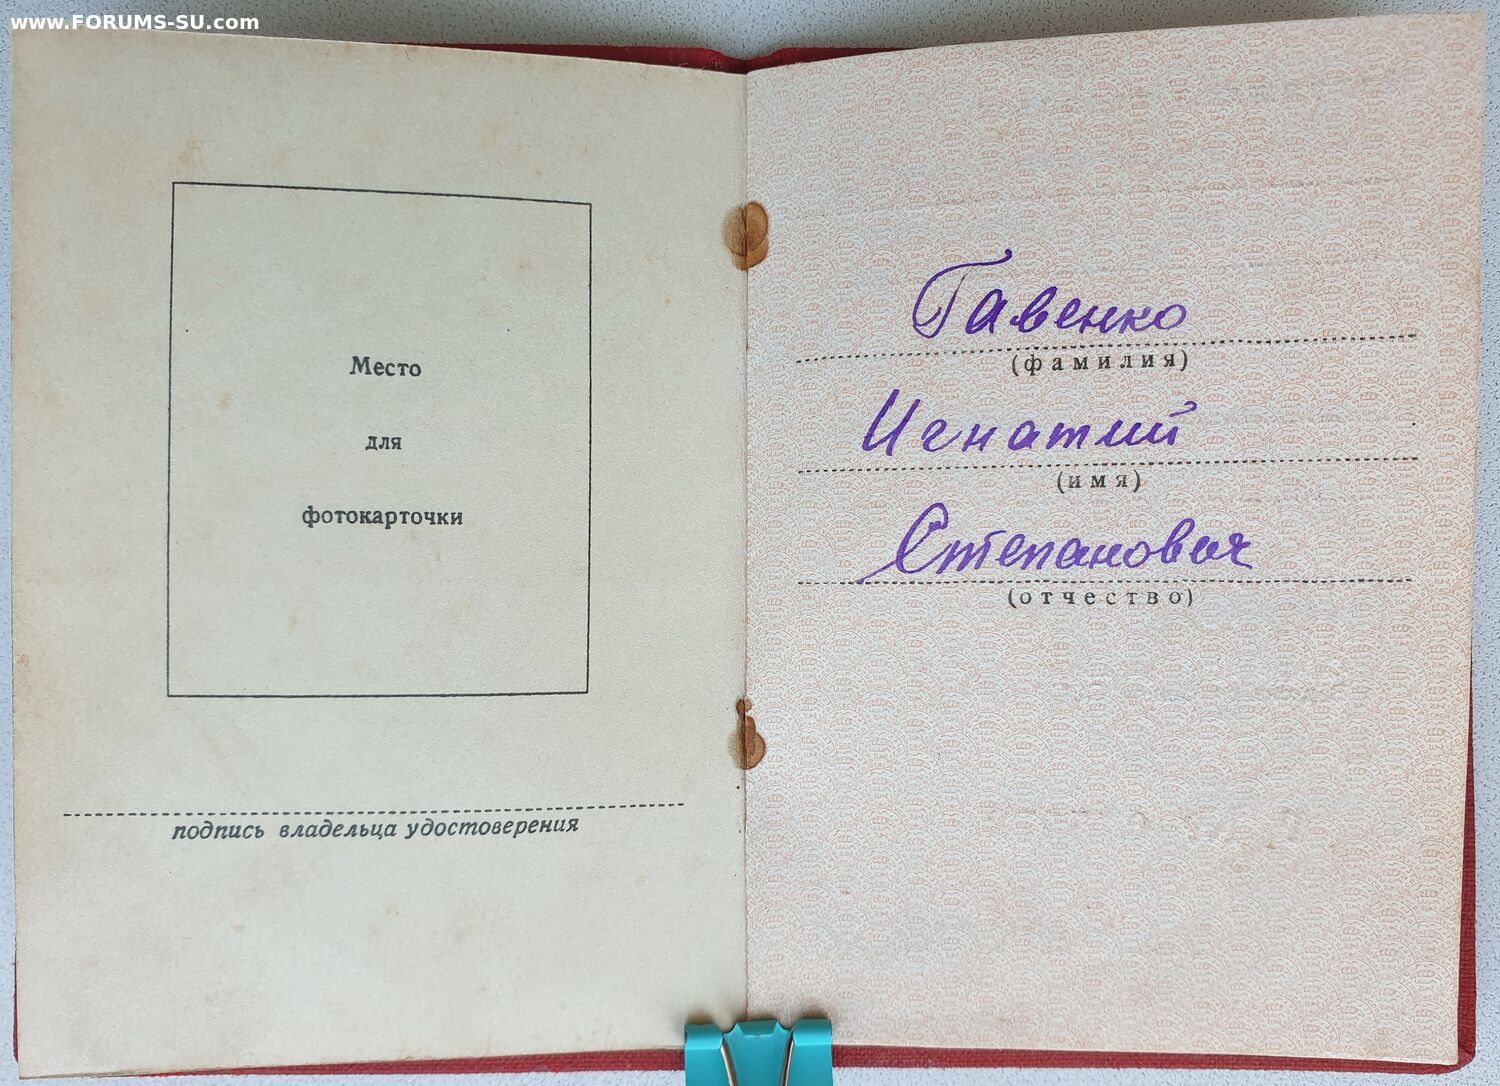 www.FORUMS-SU.com
Место
для
фотокарточки
подпись владельца удостоверения
Гавенко
(фамилия)
Игнатий
(имя)
Степанович
(отчество)